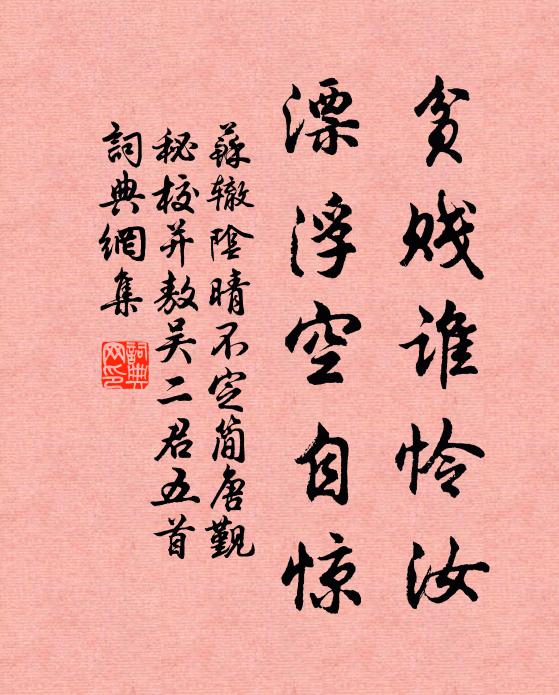 贫贱谁怜汝
漂浮空自惊
蘇辙陰晴不定简唐觐
秘校并敖吴二君五首
詞典網集
詞典网印